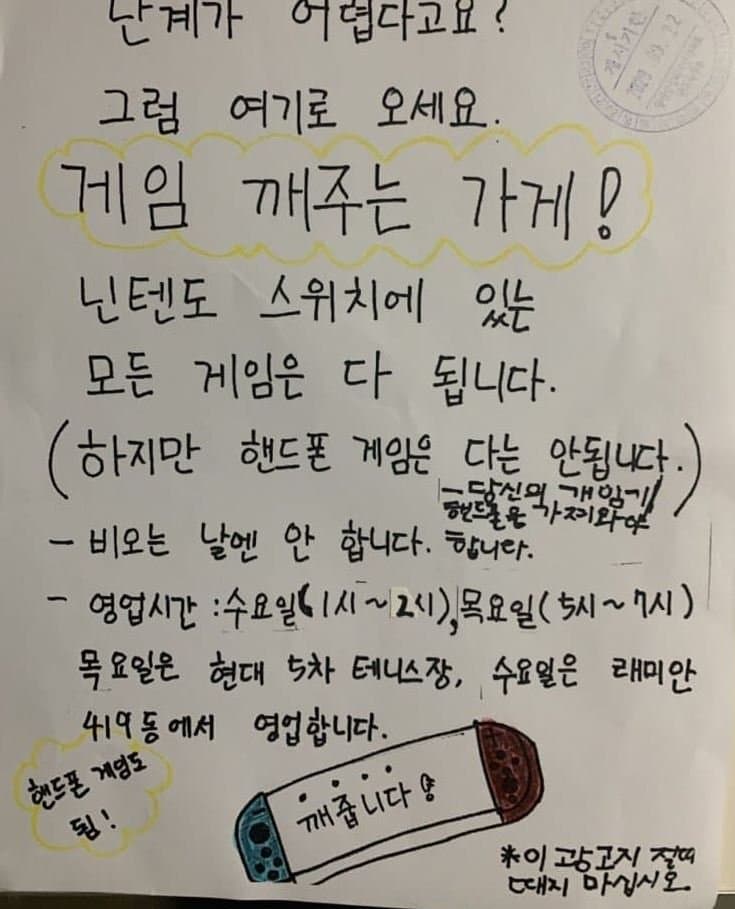 난계가 어렵다고요?
그럼 여기로 오세요.
게임 깨주는 가게!
닌텐도 스위치에 있는
모든 게임은 다 됩니다.
(하지만 핸드폰 게임은 다는 안됩니다.)
- 당신의 개임기/
핸드폰은 가지와야
합니다.
- 비오는 날엔 안 합니다.
- 영업시간 : 수요일(1시~2시), 목요일(5시~7시)
목요일은 현대 5차 테니스장, 수요일은 래미안
419동에서 영업합니다.
핸드폰 게임도
됨!
깨줍니다!
*이 광고지 절때
떼지 마십시오.
게시기한